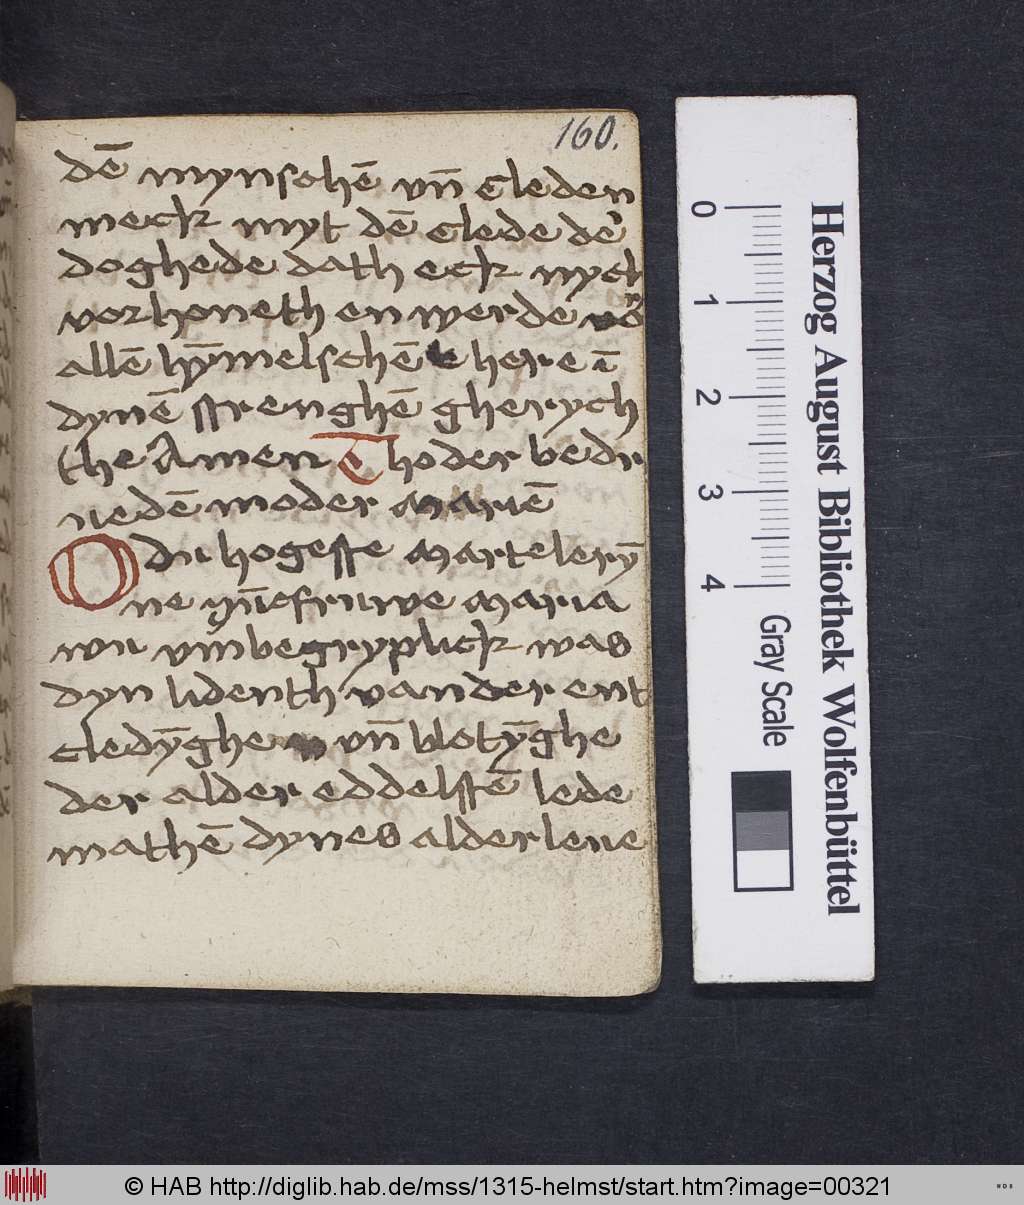 160.
dē mynschē vn̄ cleden
meck myt dē clede der
doghede dath eck nych
vorhoneth en werde vor
allē hȳmelschē here ī
dynē strenghē gherych
the Amen Tho der bedr
uedē moder Mariē
O du hogeste Martelerȳ
ne yūcfruwe Maria
wu vmbegryplick was
dyn lidenth van der ent
cledȳghe vn̄ blotȳghe
der alder eddelstē lede
mathē dynes alder leue
Herzog August Bibliothek Wolfenbüttel
0 1 2 3 4
Gray Scale
© HAB http://diglib.hab.de/mss/1315-helmst/start.htm?image=00321